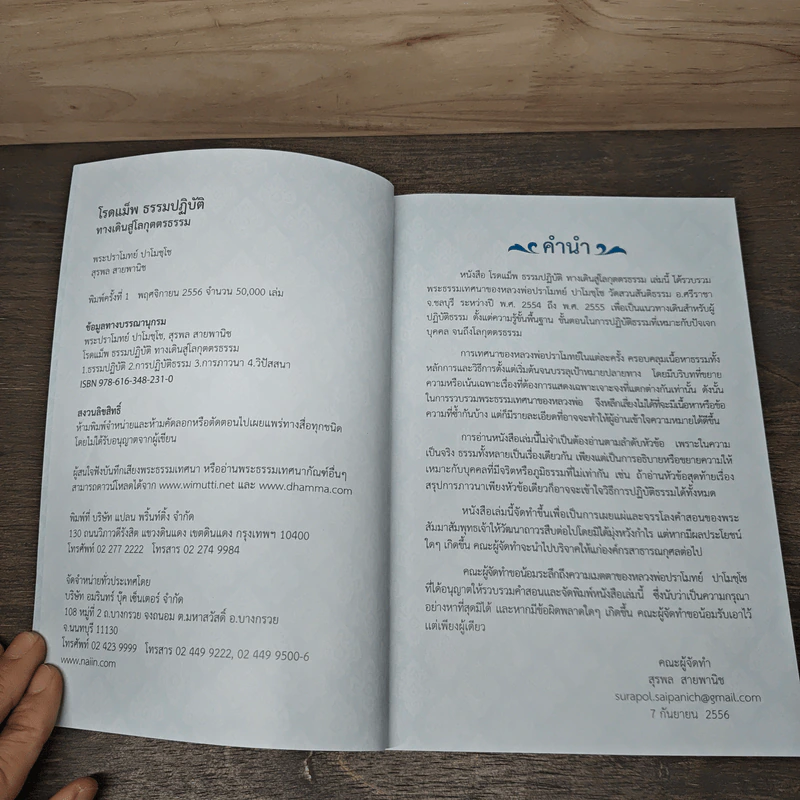 โรดแม็พ ธรรมปฏิบัติ
ทางเดินสู่โลกุตตรธรรม
พระปราโมทย์ ปาโมชฺโช
สุรพล สายพานิช
พิมพ์ครั้งที่ 1 พฤศจิกายน 2556 จำนวน 50,000 เล่ม
ข้อมูลทางบรรณานุกรม
พระปราโมทย์ ปาโมชฺโช, สุรพล สายพานิช
โรดแม็พ ธรรมปฏิบัติ ทางเดินสู่โลกุตตรธรรม
1.ธรรมปฏิบัติ 2.การปฏิบัติธรรม 3.การภาวนา 4.วิปัสสนา
ISBN 978-616-348-231-0
สงวนลิขสิทธิ์
ห้ามพิมพ์จำหน่ายและห้ามคัดลอกหรือตัดตอนไปเผยแพร่ทางสื่อทุกชนิด
โดยไม่ได้รับอนุญาตจากผู้เขียน
ผู้สนใจฟังบันทึกเสียงพระธรรมเทศนา หรืออ่านพระธรรมเทศนากัณฑ์อื่นๆ
สามารถดาวน์โหลดได้จาก www.wimutti.net และ www.dhamma.com
พิมพ์ที่ บริษัท แปลน พริ้นท์ติ้ง จำกัด
130 ถนนวิภาวดีรังสิต แขวงดินแดง เขตดินแดง กรุงเทพฯ 10400
โทรศัพท์ 02 277 2222 โทรสาร 02 274 9984
จัดจำหน่ายทั่วประเทศโดย
บริษัท อมรินทร์ บุ๊ค เซ็นเตอร์ จำกัด
108 หมู่ที่ 2 ถ.บางกรวย จงถนอม ต.มหาสวัสดิ์ อ.บางกรวย
จ.นนทบุรี 11130
โทรศัพท์ 02 423 9999 โทรสาร 02 449 9222, 02 449 9500-6
www.naiin.com
คำนำ
หนังสือ โรดแม็พ ธรรมปฏิบัติ ทางเดินสู่โลกุตตรธรรม เล่มนี้ ได้รวบรวม
พระธรรมเทศนาของหลวงพ่อปราโมทย์ ปาโมชฺโช วัดสวนสันติธรรม อ.ศรีราชา
จ.ชลบุรี ระหว่างปี พ.ศ. 2554 ถึง พ.ศ. 2555 เพื่อเป็นแนวทางเดินสำหรับผู้
ปฏิบัติธรรม ตั้งแต่ความรู้ขั้นพื้นฐาน ขั้นตอนในการปฏิบัติธรรมที่เหมาะกับปัจเจก
บุคคล จนถึงโลกุตตรธรรม
การเทศนาของหลวงพ่อปราโมทย์ในแต่ละครั้ง ครอบคลุมเนื้อหาธรรมทั้ง
หลักการและวิธีการตั้งแต่เริ่มต้นจนบรรลุเป้าหมายปลายทาง โดยมีบริบทที่ขยาย
ความหรือเน้นเฉพาะเรื่องที่ต้องการแสดงเฉพาะเจาะจงที่แตกต่างกันเท่านั้น ดังนั้น
ในการรวบรวมพระธรรมเทศนาของหลวงพ่อ จึงหลีกเลี่ยงไม่ได้ที่จะมีเนื้อหาหรือข้อ
ความที่ซ้ำกันบ้าง แต่ก็มีรายละเอียดที่อาจจะทำให้ผู้อ่านเข้าใจความหมายได้ดีขึ้น
การอ่านหนังสือเล่มนี้ไม่จำเป็นต้องอ่านตามลำดับหัวข้อ เพราะในความ
เป็นจริง ธรรมทั้งหลายเป็นเรื่องเดียวกัน เพียงแต่เป็นการอธิบายหรือขยายความให้
เหมาะกับบุคคลที่มีจริตหรือภูมิธรรมที่ไม่เท่ากัน เช่น ถ้าอ่านหัวข้อสุดท้ายเรื่อง
สรุปการภาวนาเพียงหัวข้อเดียวก็อาจจะเข้าใจวิธีการปฏิบัติธรรมได้ทั้งหมด
หนังสือเล่มนี้จัดทำขึ้นเพื่อเป็นการเผยแผ่และจรรโลงคำสอนของพระ
สัมมาสัมพุทธเจ้าให้วัฒนาถาวรสืบต่อไปโดยมิได้มุ่งหวังกำไร แต่หากมีผลประโยชน์
ใดๆ เกิดขึ้น คณะผู้จัดทำจะนำไปบริจาคให้แก่องค์กรสาธารณกุศลต่อไป
คณะผู้จัดทำขอน้อมระลึกถึงความเมตตาของหลวงพ่อปราโมทย์ ปาโมชฺโช
ที่ได้อนุญาตให้รวบรวมคำสอนและจัดพิมพ์หนังสือเล่มนี้ ซึ่งนับว่าเป็นความกรุณา
อย่างหาที่สุดมิได้ และหากมีข้อผิดพลาดใดๆ เกิดขึ้น คณะผู้จัดทำขอน้อมรับเอาไว้
แต่เพียงผู้เดียว
คณะผู้จัดทำ
สุรพล สายพานิช
surapol.saipanich@gmail.com
7 กันยายน 2556